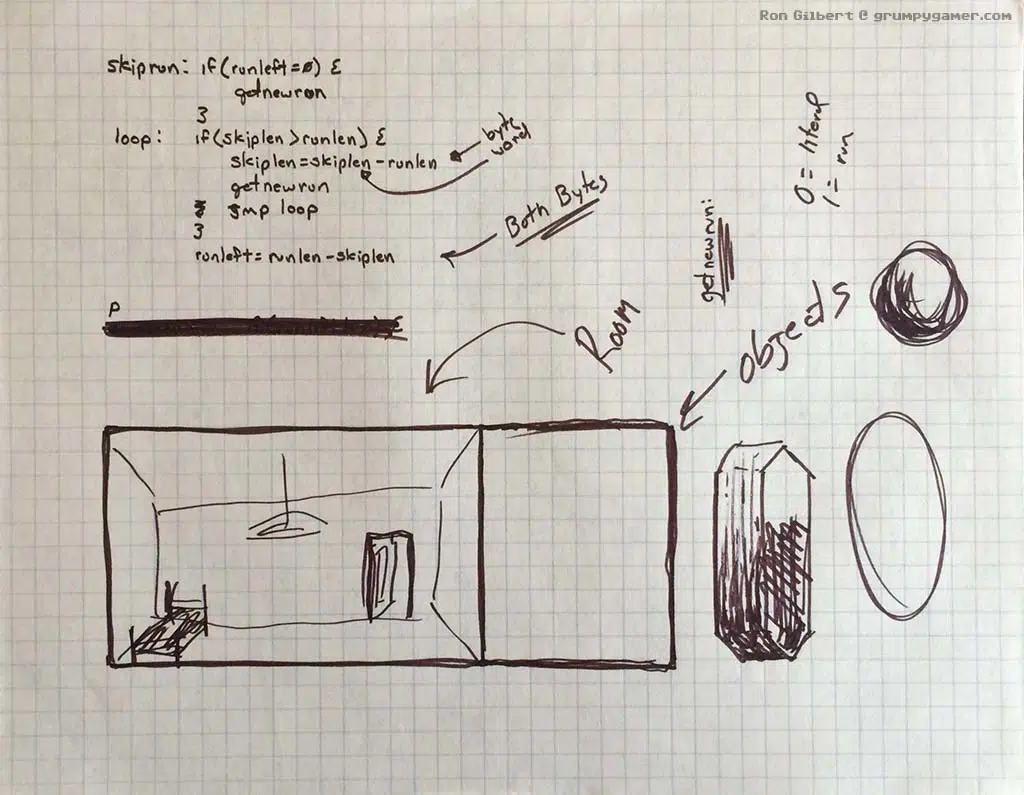 Ron Gilbert @ grumpygamer.com
skiprun: if(runleft=0) {
getnewrun
}
loop: if(skiplen>runlen) {
skiplen=skiplen-runlen
getnewrun
jmp loop
}
runleft=runlen-skiplen
byte
word
Both Bytes
getnewrun:
0= literal
1= run
P
Room
Objects